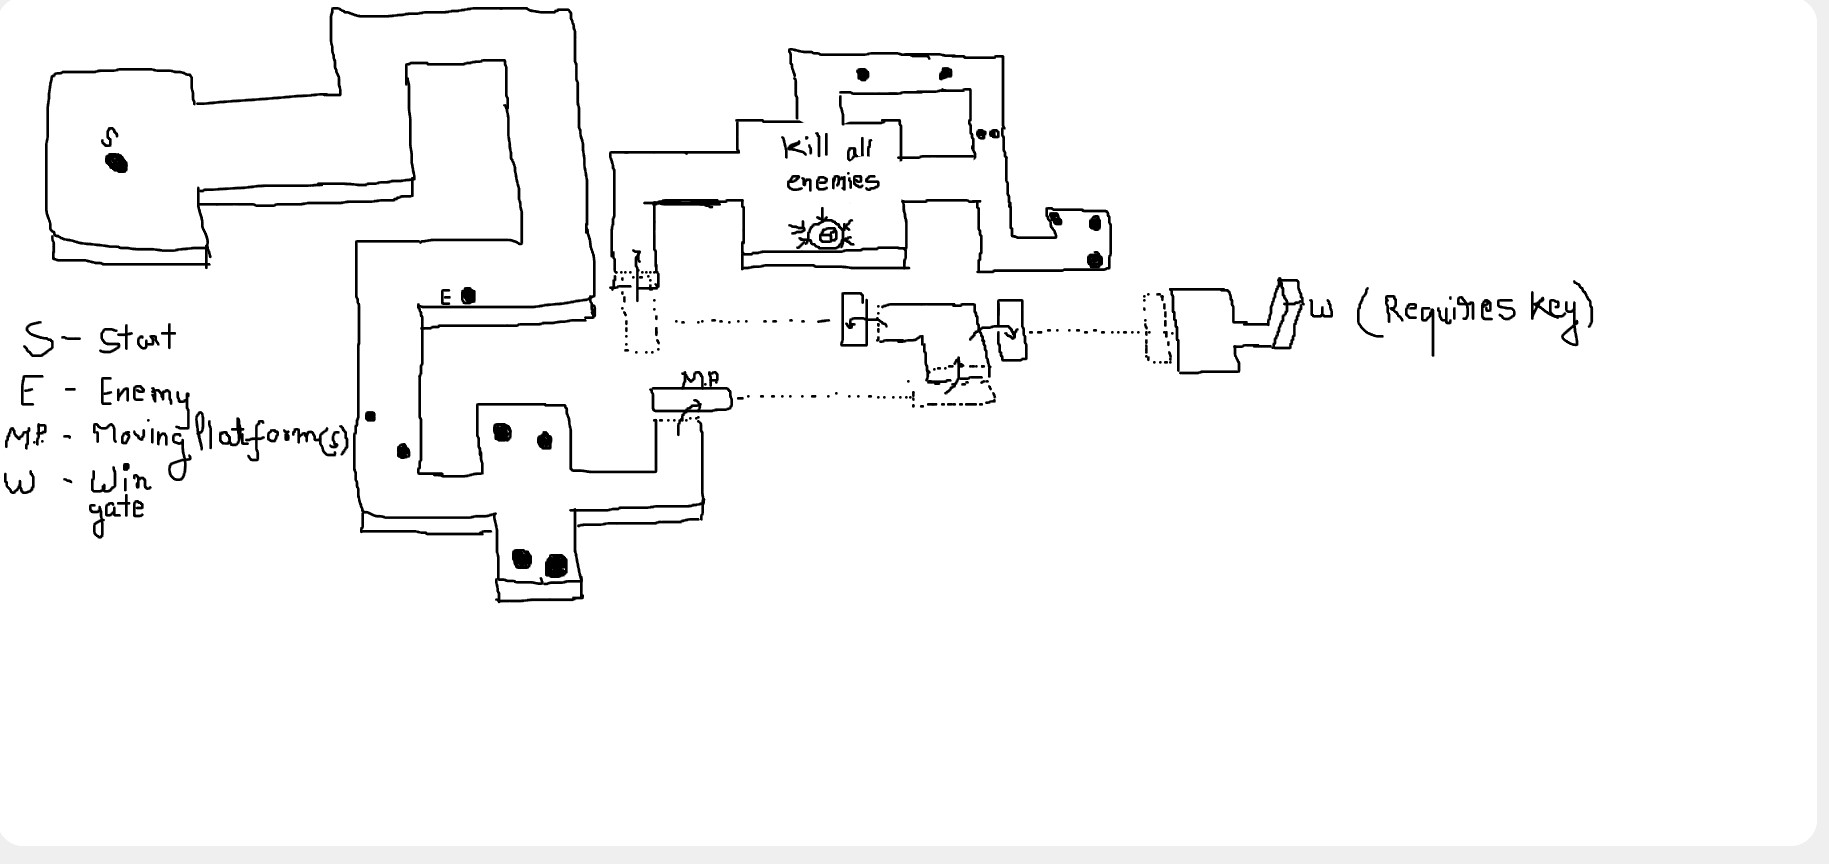 S
Kill all
enemies
E
W (Requires key)
M.P.
S - Start
E - Enemy
M.P. - Moving Platform(s)
W - Win
gate